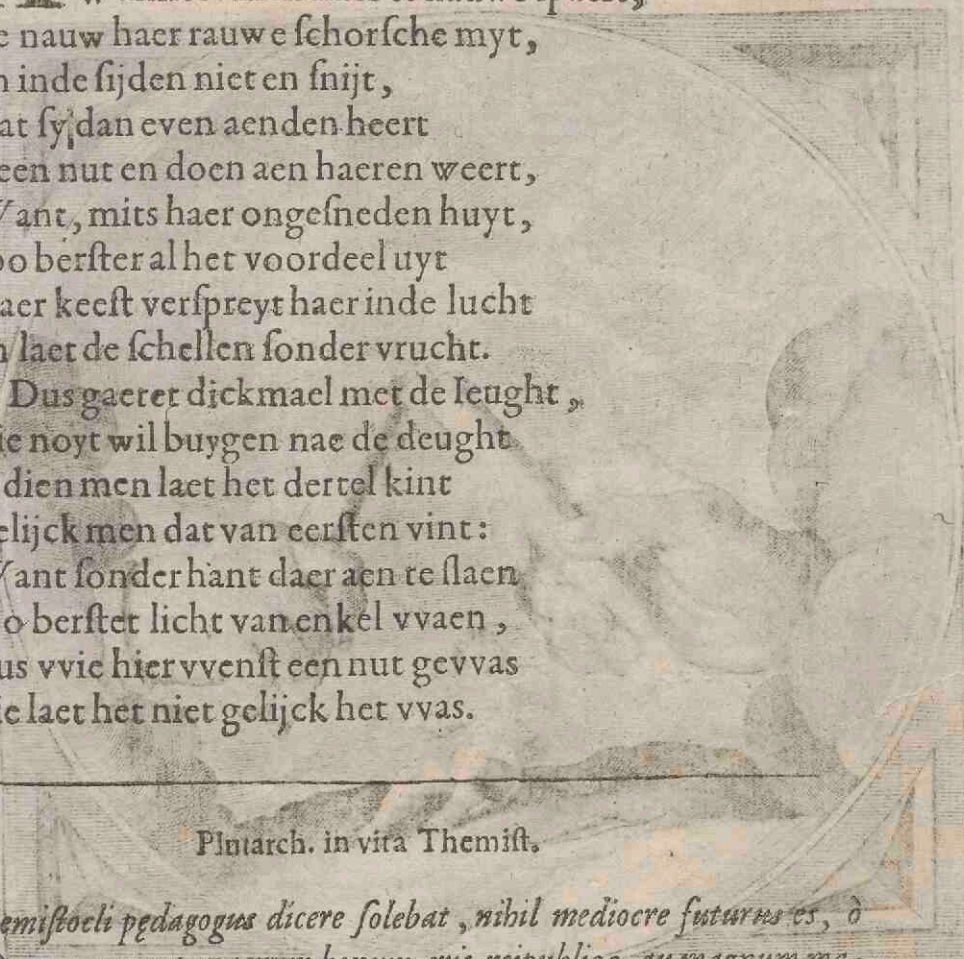 nauw haer rauwe ſchorſche myt,
inde ſijden niet en ſnijt,
at ſy dan even aenden heert
een nut en doen aen haeren weert,
ant, mits haer ongeſneden huyt,
oo berſter al het voordeel uyt
aer keeſt verſpreyt haer inde lucht
laet de ſchellen ſonder vrucht.
Dus gaeret dickmael met de Ieught,
ie noyt wil buygen nae de deught
dien men laet het dertel kint
elijck men dat van eerſten vint:
ant ſonder hant daer aen te ſlaen
o berſtet licht van enkel vvaen,
us vvie hier vvenſt een nut gevvas
ie laet het niet gelijck het vvas.
Plutarch. in vita Themiſt.
emiſtocli pędagogus dicere ſolebat, nihil mediocre futurus es, ò